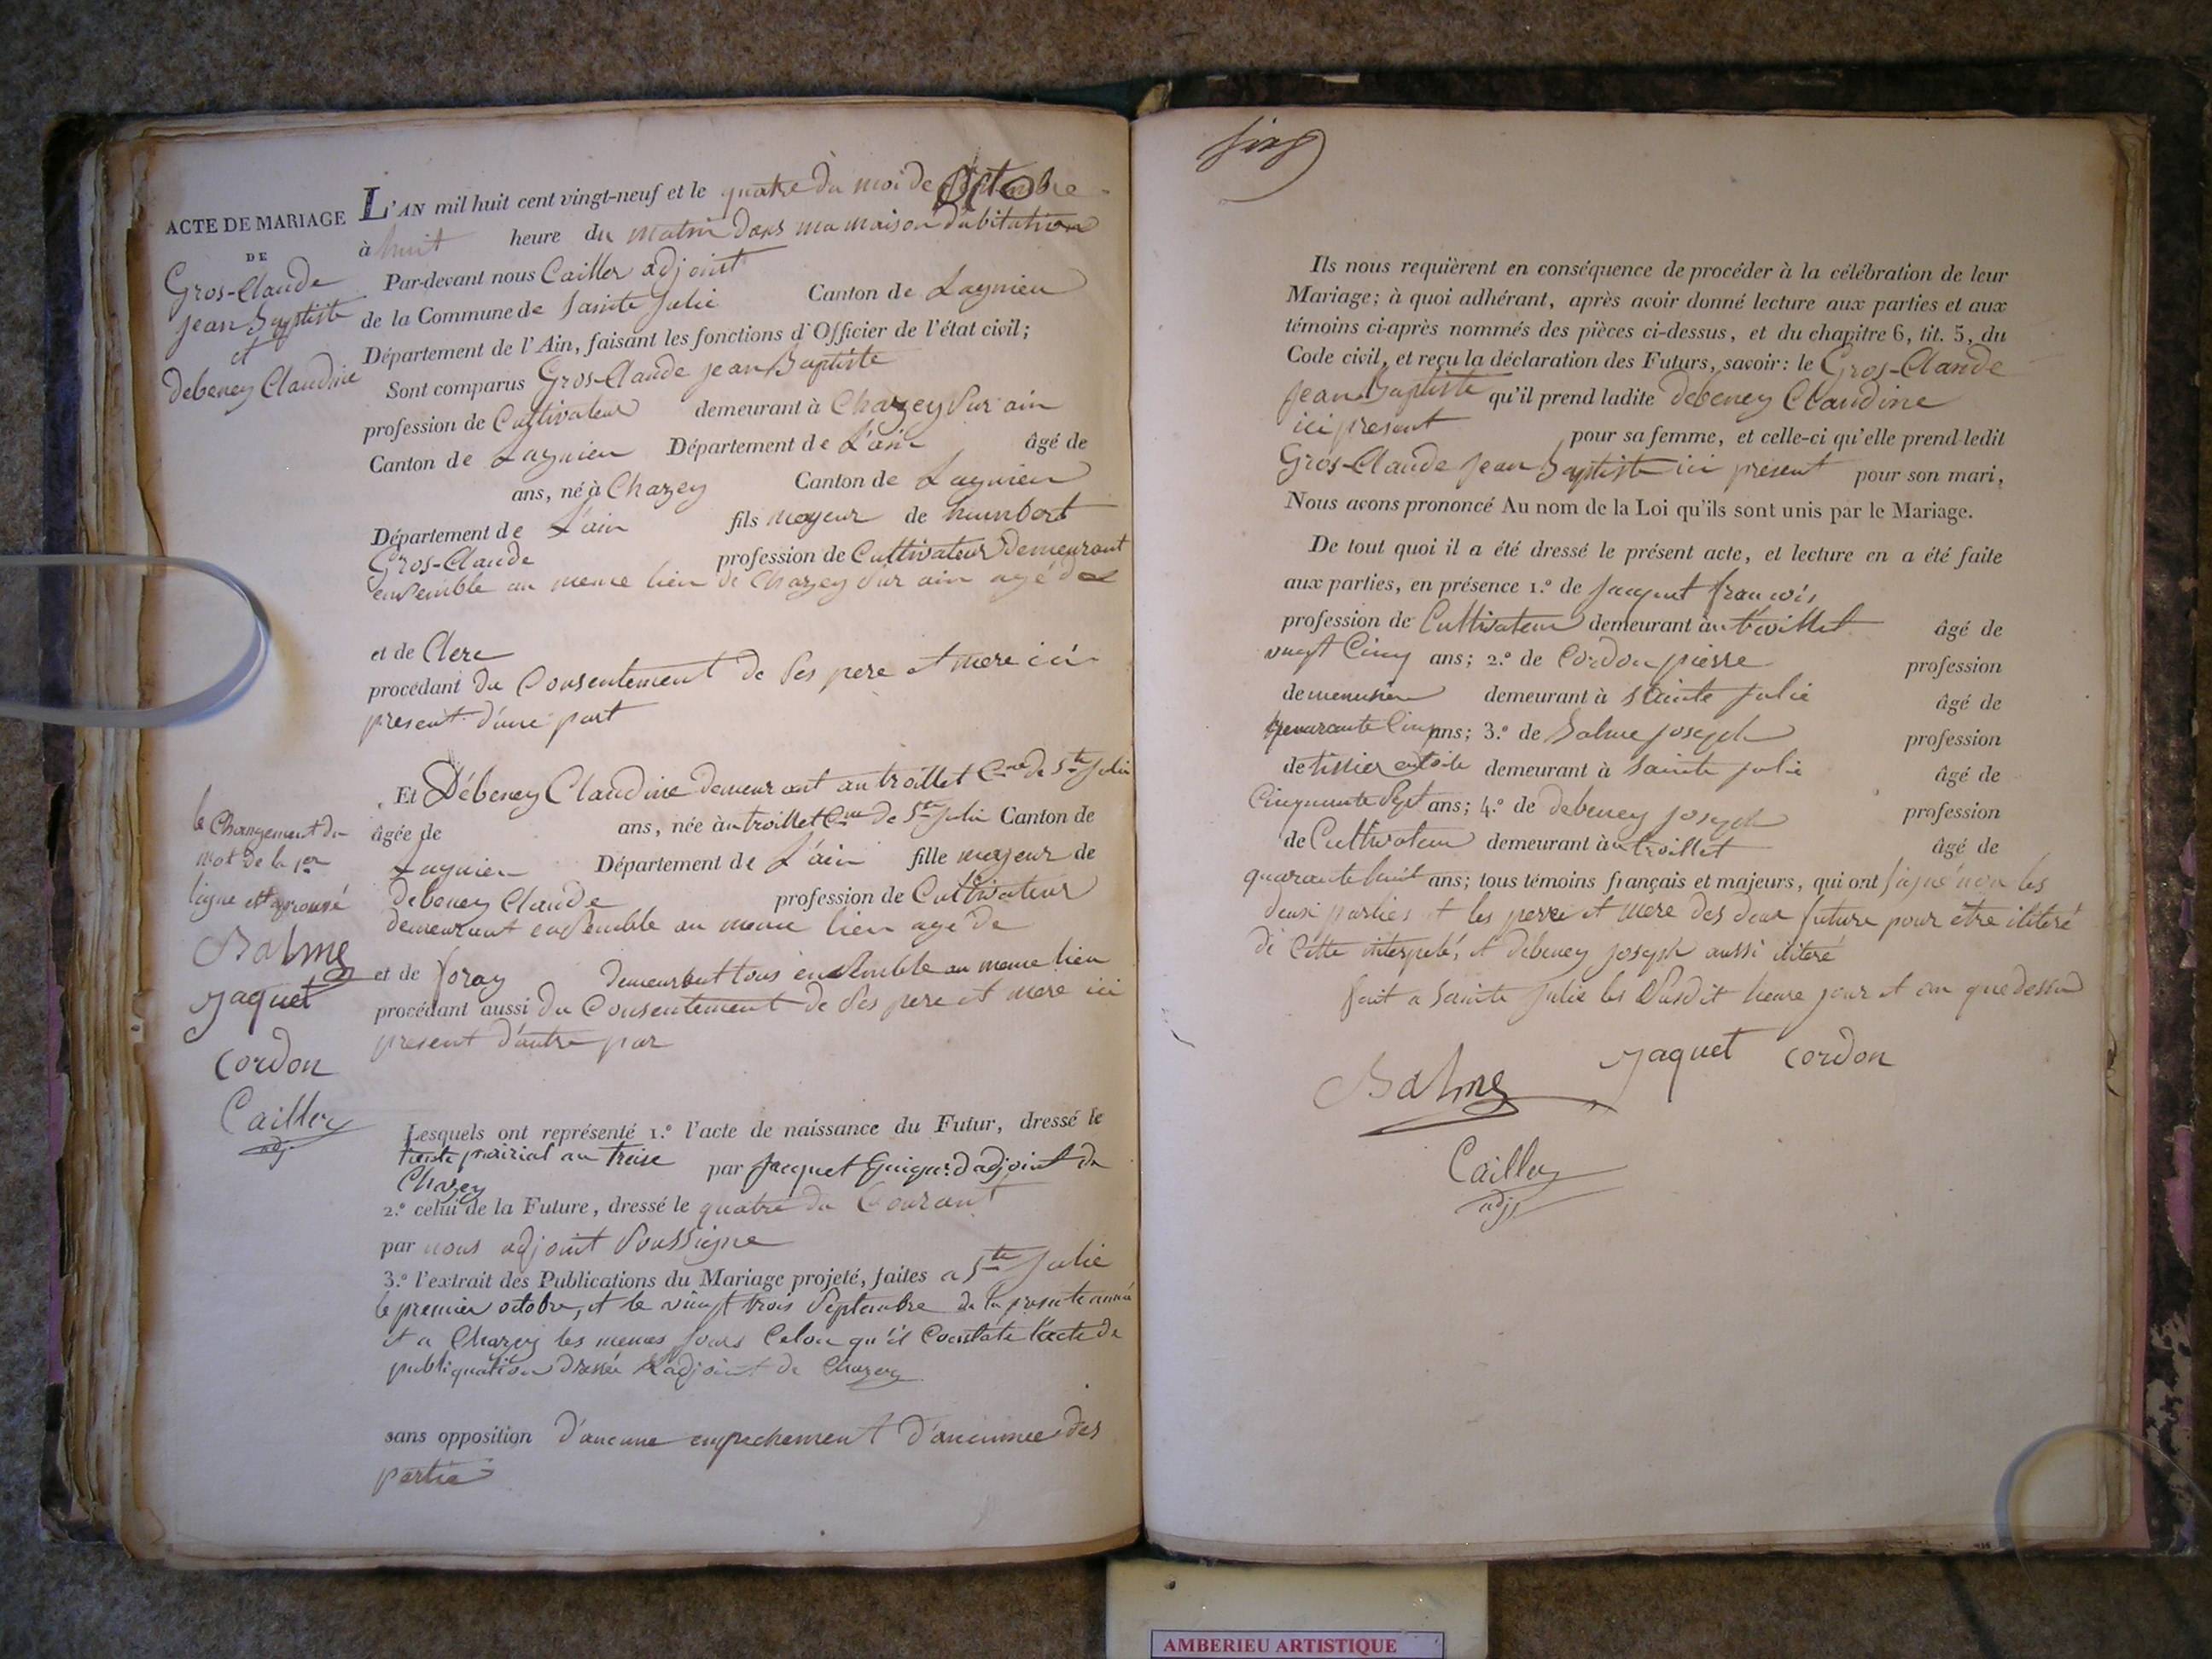 ACTE DE MARIAGE
DE
Gros-Claude
jean Baptiste
et
debeney Claudine
L'AN mil huit cent vingt-neuf et le quatre du moi de Octobre
à huit heure du matin dans ma maison d'abitation
Par-devant nous Cailler adjoint
de la Commune de Sainte Julie Canton de Lagnieu
Département de l'Ain, faisant les fonctions d'Officier de l'état civil;
Sont comparus Gros-Claude jean Baptiste
profession de Cultivateur demeurant à Chazey Sur ain
Canton de Lagnieu Département de L'ain âgé de
ans, né à Chazey Canton de Lagnieu
Département de L'ain fils majeur de humbert
Gros-Claude profession de Cultivateur demeurant
ensemble au meme lieu de Chazey Sur ain agé de
et de Clerc
procédant du Consentement de Ses pere et mere ici
present d'une part
Et Débeney Claudine demeurant au troillet Cne de Ste Julie
âgée de ans, née à au troillet Cne de Ste Julie Canton de
Lagnieu Département de L'ain fille majeur de
debeney Claude profession de Cultivateur
demeurant ensemble au meme lieu agé de
et de foray demeurant tous ensemble au meme lieu
procédant aussi du Consentement de Ses pere et mere ici
present d'autre par
le Changement du
mot de la 1er
ligne est aprouvé
Balme
Jaquet
Cordon
Cailler
adj
Lesquels ont représenté 1.º l'acte de naissance du Futur, dressé le
trente prairial an treise par Jacquet Guigard adjoint de
Chazey
2.º celui de la Future, dressé le quatre du Courant
par nous adjoint Soussigne
3.º l'extrait des Publications du Mariage projeté, faites a Ste Julie
le premier octobre, et le vingt trois Septembre de la presente année
et a Chazey les memes jours Celon qu'il Constate l'acte de
publiquation dressée l'adjoint de Chazey
sans opposition d'aucune empechement d'aucunnee des
partie
Ils nous requièrent en conséquence de procéder à la célébration de leur
Mariage; à quoi adhérant, après avoir donné lecture aux parties et aux
témoins ci-après nommés des pièces ci-dessus, et du chapitre 6, tit. 5, du
Code civil, et reçu la déclaration des Futurs, savoir: le Gros-Claude
jean Baptiste qu'il prend ladite debeney Claudine
ici present pour sa femme, et celle-ci qu'elle prend ledit
Gros-Claude jean Baptiste ici present pour son mari,
Nous avons prononcé Au nom de la Loi qu'ils sont unis par le Mariage.
De tout quoi il a été dressé le présent acte, et lecture en a été faite
aux parties, en présence 1.º de Jaquet francois
profession de Cultivateur demeurant au troillet âgé de
vingt Cinq ans; 2.º de Cordon pierre profession
de menusier demeurant à Sainte Julie âgé de
quarante Cinq ans; 3.º de Balme joseph profession
de tissier en toile demeurant à Sainte Julie âgé de
Cinquante Sept ans; 4.º de debeney joseph profession
de Cultivateur demeurant à au troillet âgé de
quarante huit ans; tous témoins français et majeurs, qui ont signé non les
deux parties et les perre et mere des deux future pour être ilitéré
de Cette interpelé, et debeney joseph aussi ilitéré
fait a Sainte Julie les Susdit heure jour et an que dessu
Balme
Jaquet
Cordon
Cailler
adj
AMBERIEU ARTISTIQUE